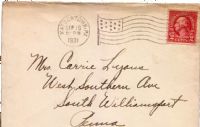 SEP 15
1931
Mrs. Carrie Lyons
West Southern Ave
South Williamsport
Penna